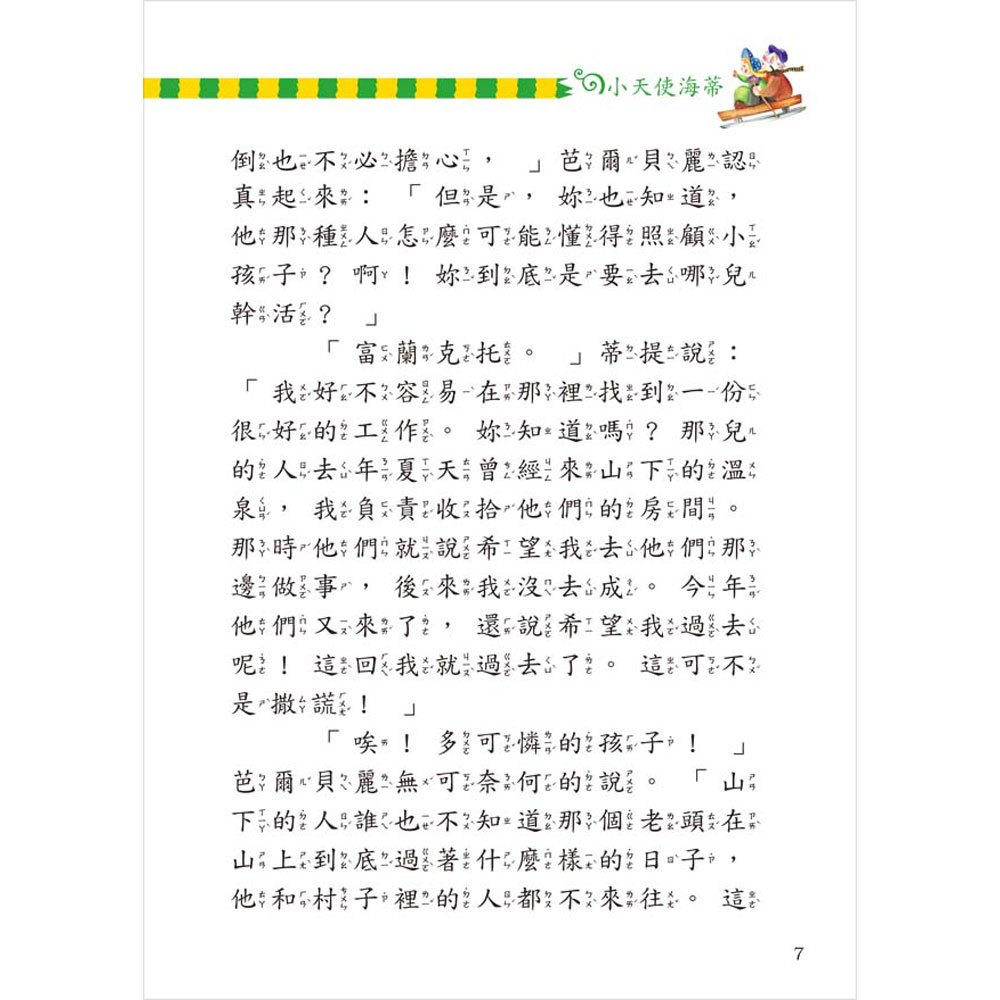 小天使海蒂
倒也不必擔心，」芭爾貝麗認
真起來：「但是，妳也知道，
他那種人怎麼可能懂得照顧小
孩子？啊！妳到底是要去哪兒
幹活？」
「富蘭克托。」蒂提說：
「我好不容易在那裡找到一份
很好的工作。妳知道嗎？那兒
的人去年夏天曾經來山下的溫
泉，我負責收拾他們的房間。
那時他們就說希望我去他們那
邊做事，後來我沒去成。今年
他們又來了，還說希望我過去
呢！這回我就過去了。這可不
是撒謊！」
「唉！多可憐的孩子！」
芭爾貝麗無可奈何的說。「山
下的人誰也不知道那個老頭在
山上到底過著什麼樣的日子，
他和村子裡的人都不來往。這
7